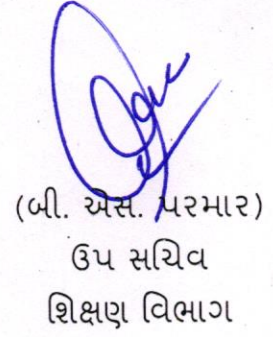 (બી. એસ. પરમાર)
ઉપ સચિવ
શિક્ષણ વિભાગ